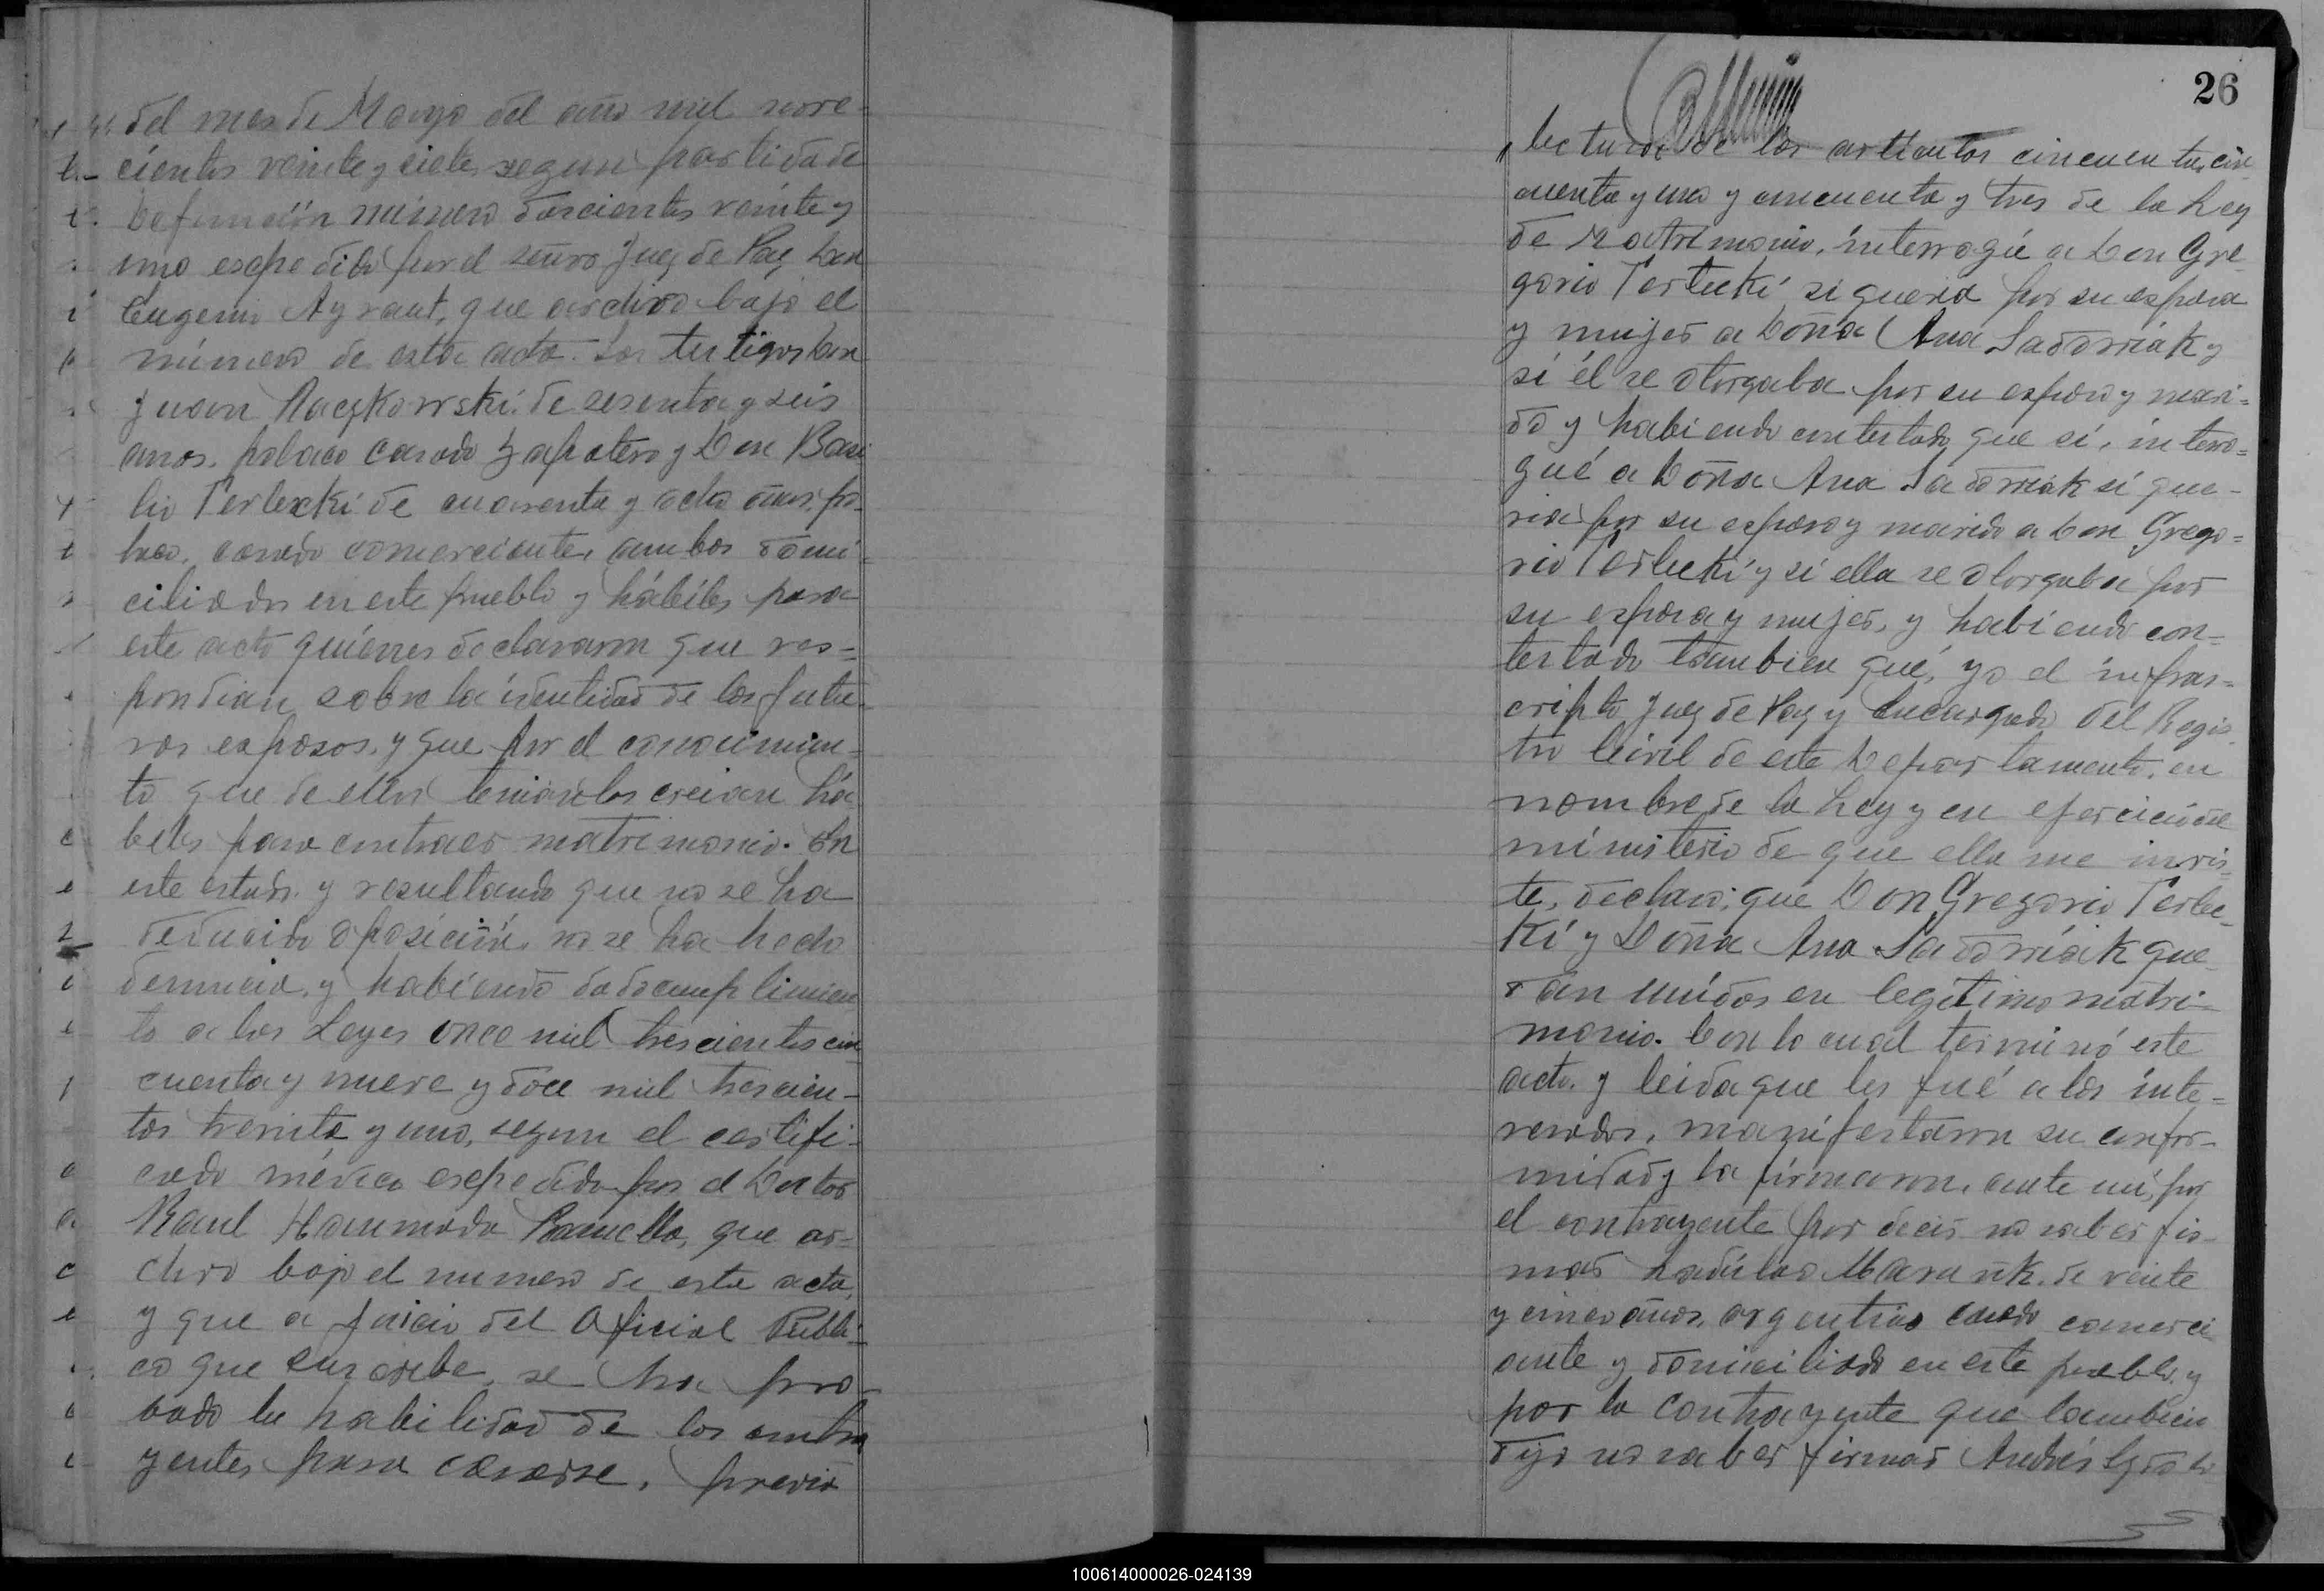 del mes de Mayo del año mil nove-
cientos veinte y siete, segun partida de
Defunción número doscientos veinte y
uno expedido por el señor Juez de Paz Don
Eugenio Ayraut, que archivo bajo el
número de esta acta. Los testigos Don
Juan Raczkowski de sesenta y seis
anos, polaco casado zapatero y Don Basi
lio Terlecki de cuarenta y ocho años, po-
laco, casado comerciante, ambos domi-
ciliados en este pueblo y hábiles para
este acto quienes declararon que res=
pondian sobre la identidad de los futu-
ros esposos, y que por el conocimien-
to que de ellos tenian los creian há
biles para contraer matrimonio. En
este estado y resultando que no se ha
deducido oposición, no se ha hecho
denuncia, y habiendo dado cumplimien
to a las Leyes once mil trescientos cin
cuenta y nueve y doce mil trescien-
tos treinta y uno, segun el certifi-
cado médico expedido por el Doctor
Raul que ar-
chivo bajo el numero de esta acta,
y que a juicio del Oficial Públi-
co que suscribe, se ha pro-
bado la habilidad de los contra
yentes para casarse, previa
26
lectura de los artículos cincuenta, cin
cuenta y uno y cincuenta y tres de la Ley
de Matrimonio, interrogué a Don Gre-
gorio Terlecki si queria por su esposa
y mujer a Doña Ana Sadowiak y
si él se otorgaba por su esposo y mari=
do y habiendo contestado que sí, interro=
gué a Doña Ana Sadowiak si que-
ria por su esposo y marido a Don Grego=
rio Terlecki y si ella se otorgaba por
su esposa y mujer, y habiendo con-
testado tambien que, yo el infras-
cripto Juez de Paz y Encargado del Regis
tro Civil de este Departamento, en
nombre de la Ley y en ejercicio del
ministerio de que ella me invis-
te, declaro; que Don Gregorio Terlec-
ki y Doña Ana Sadowiak que-
dan unidos en legítimo matri-
monio. Con lo cual terminó este
acto. y leida que les fué a los inte-
resados, manifestaron su confor-
midad y la firmaron, ante mi, por
el contrayente por decir no saber fir-
mar Ladislao de veinte
y cinco años, argentino casado comerci
ante y domiciliado en este pueblo, y
por la contrayente que tambien
dijo no saber firmar Andrés
100614000026-024139